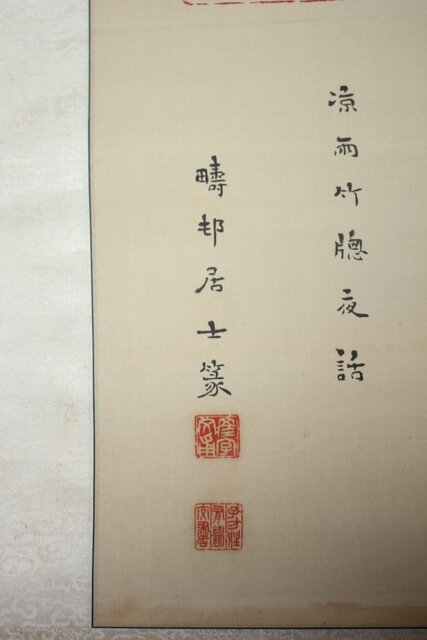 凉雨竹牕夜話
疇邨居士篆